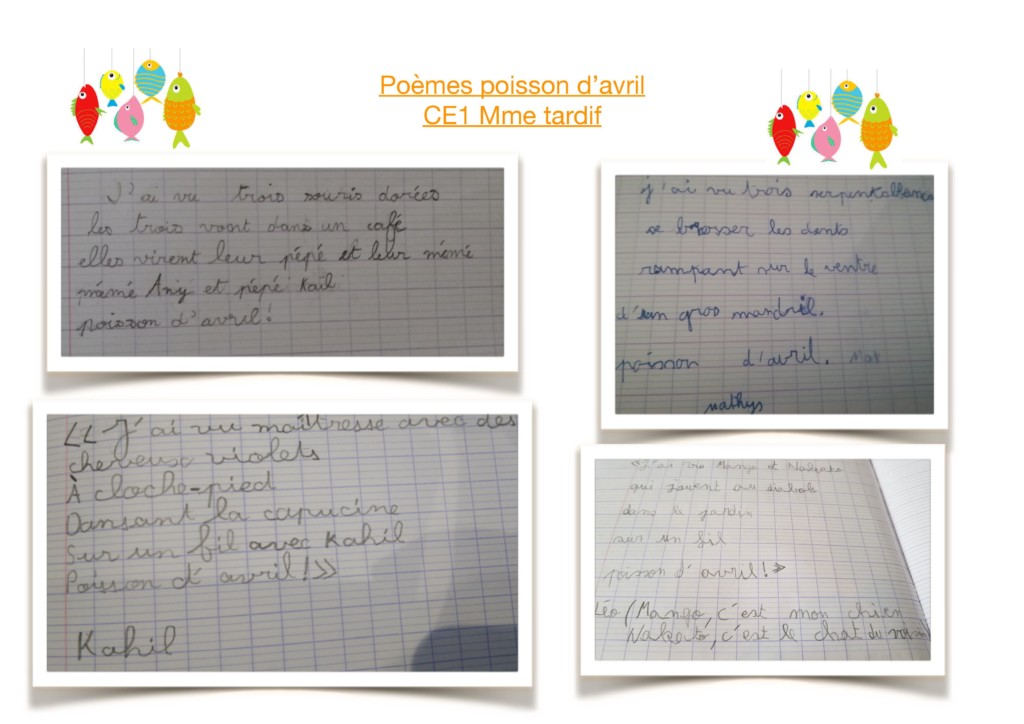 Poèmes poisson d'avril
CE1 Mme tardif
J'ai vu trois souris dorées
les trois vont dans un café
elles virent leur pépé et leur mémé
mémé Any et pépé Kaïl
poisson d'avril!
j'ai vu trois
se brosser les dents
rampant sur le ventre
d'un gros mandril.
poisson d'avril. Mat
mathys
«J'ai vu maîtresse avec des
cheveux violets
À cloche-pied
Dansant la capucine
Sur un fil avec Kahil
Poisson d'avril!»
Kahil
«J'ai vu Mango et
qui jouent au
dans le jardin
sur un fil
poisson d'avril!»
Léo (Mango, c'est mon chien
c'est le chat du